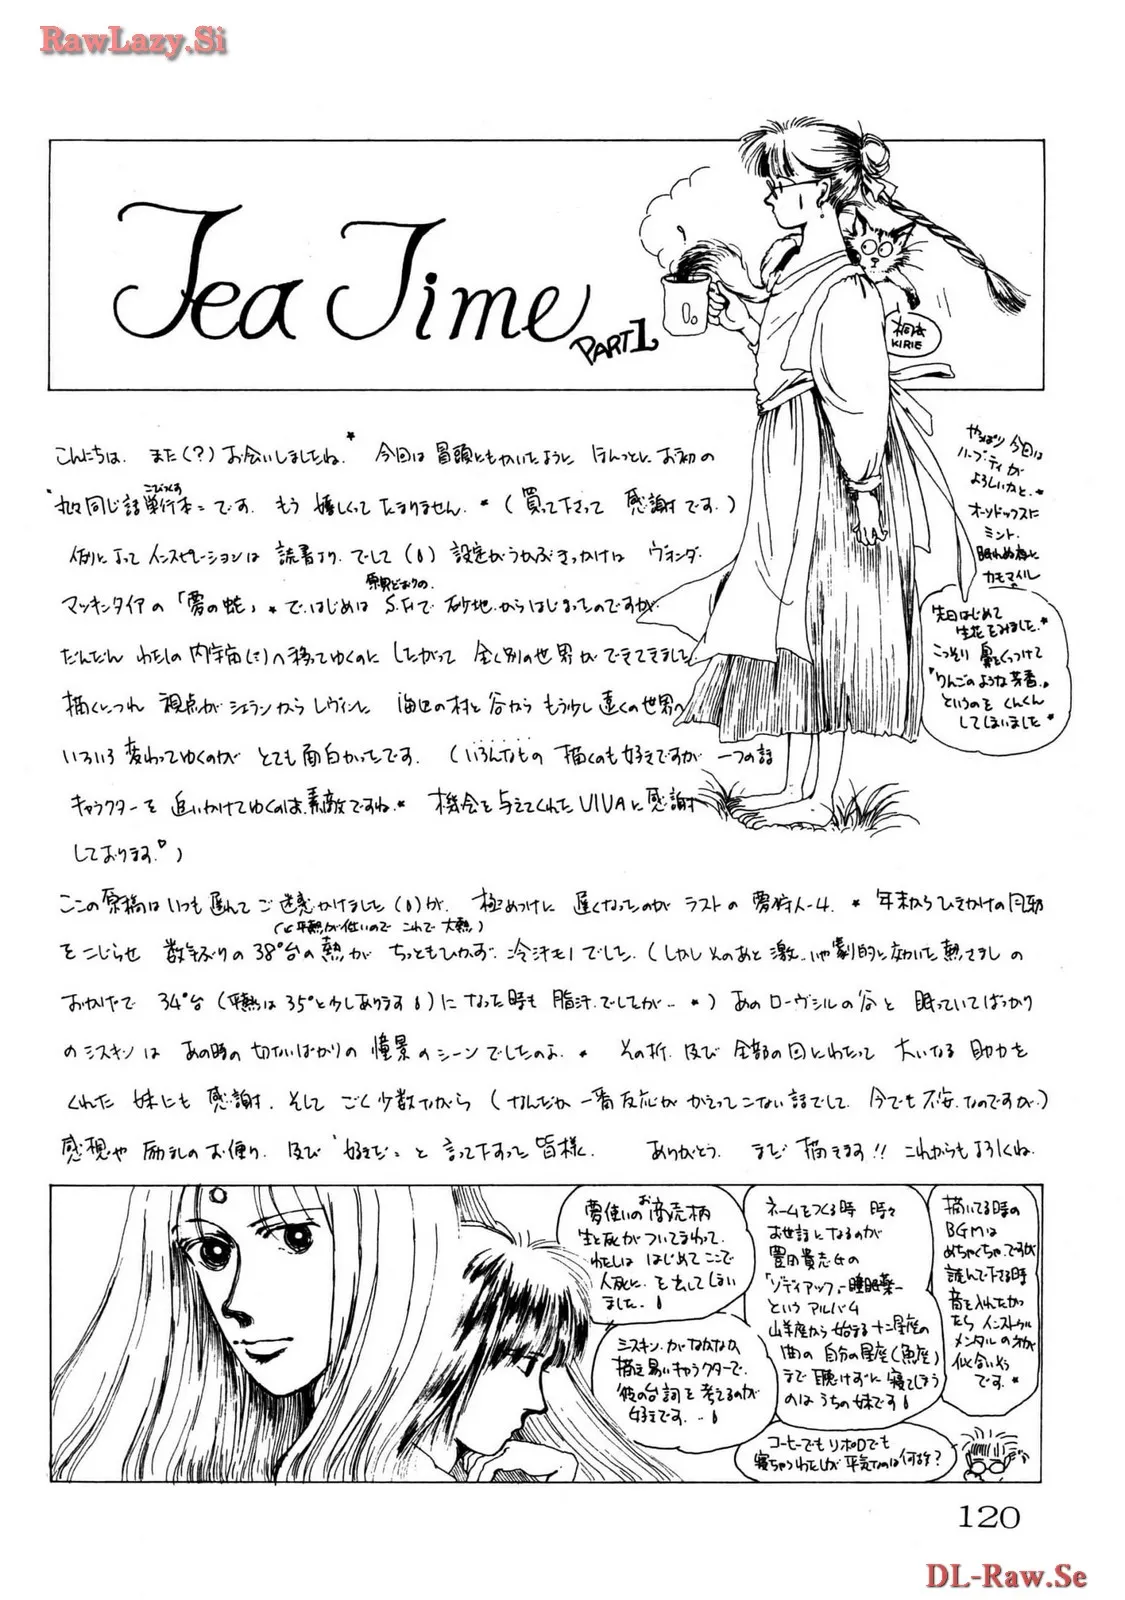 RawLazy.Si
Tea Time
PART1
桐本
KIRIE
こんにちは. また(?)お会いしましたね.* 今回は 冒頭にもかいたように ほんっとにお初の
"丸々同じ話単行本"です. もう 嬉しくって たまりません.* (買って下さって 感謝です.)
こみっくす
例によって インスピレーションは 読書より. でして 設定がうかぶきっかけは ヴォンダ・
原題どおりの
マッキンタイアの「夢の蛇」* で. はじめは S.Fで 砂地からはじまったのですが
だんだん わたしの内宇宙(に)へ移ってゆくのに したがって 全く別の世界が できてきました.
描くにつれ 視点が シェランから レヴィンに 海辺の村と谷から もう少し遠くの世界へ
いろいろ変わってゆくのが とても面白かったです. (いろんなもの 描くのも好きですが 一つの話
キャラクターを 追いかけてゆくのは.素敵ですね.* 機会を与えてくれたVIVAに感謝
しております.♡)
やっぱり 今回は
ハーブ・ティが
よろしいかと.*
オーソドックスに
ミント.
眠れぬ夜に
カモマイル
先日はじめて
生花をみました.*
こっそり 鼻をくっつけて
「りんごのような芳香.」
というのを くんくん
してしまいました*
ここの原稿はいつも遅れて ご迷惑かけました が. 極めつけに 遅くなったのが ラストの 夢狩人-4.* 年末からひきかけの風邪
(平熱が低いので これで 大熱)
をこじらせ 数年ぶりの 38°台の熱が ちっともひかず. 冷汗モノでした. (しかし そのあと 激..いや劇的に効いた 熱さましの
おかげで 34°台 (平熱は35°と少しあります)に なった時も 脂汗.でしたが..*) あのローヴシルの谷と 眠っていてばっかり
のミスキンは あの時の 切ないばかりの 憧景のシーンでしたのよ.* その折. 及び 全部の回にわたって 大いなる 助力を
くれた 妹にも 感謝. そして ごく少数ながら (なんだか 一番反応が かえってこない話でして. 今でも不安.なのですが.)
感想や 励ましのお便り. 及び "好きだ"と 言って下すった皆様. ありがとう. まだ 描きます!! これからもよろしくね.
夢使いのお商売柄
生と死がついてまわって.
わたしは はじめてここで
人死に.を 出してしまい
ました.
ミスキン.がなかなか
描き易いキャラクターで.
彼の台詞を考えるのが
好きです..
ネームをつくる時 時々
お世話になるのが
豊田貴志氏の
「ゾディアック.-睡眠薬-
という アルバム
山羊座から 始まる 十二星座の
曲の 自分の星座(魚座)
まで 聴けずに 寝てしまう
のは うちの妹です
描いてる時の
BGMは
めちゃくちゃ.ですが
読んで下さる時
音を入れたかっ
たら インストゥル
メンタルの方が
似合いそう
です.*
コーヒーでもリポDでも
寝ちゃうわたしが 平気なのは何故?
120
DL-Raw.Se